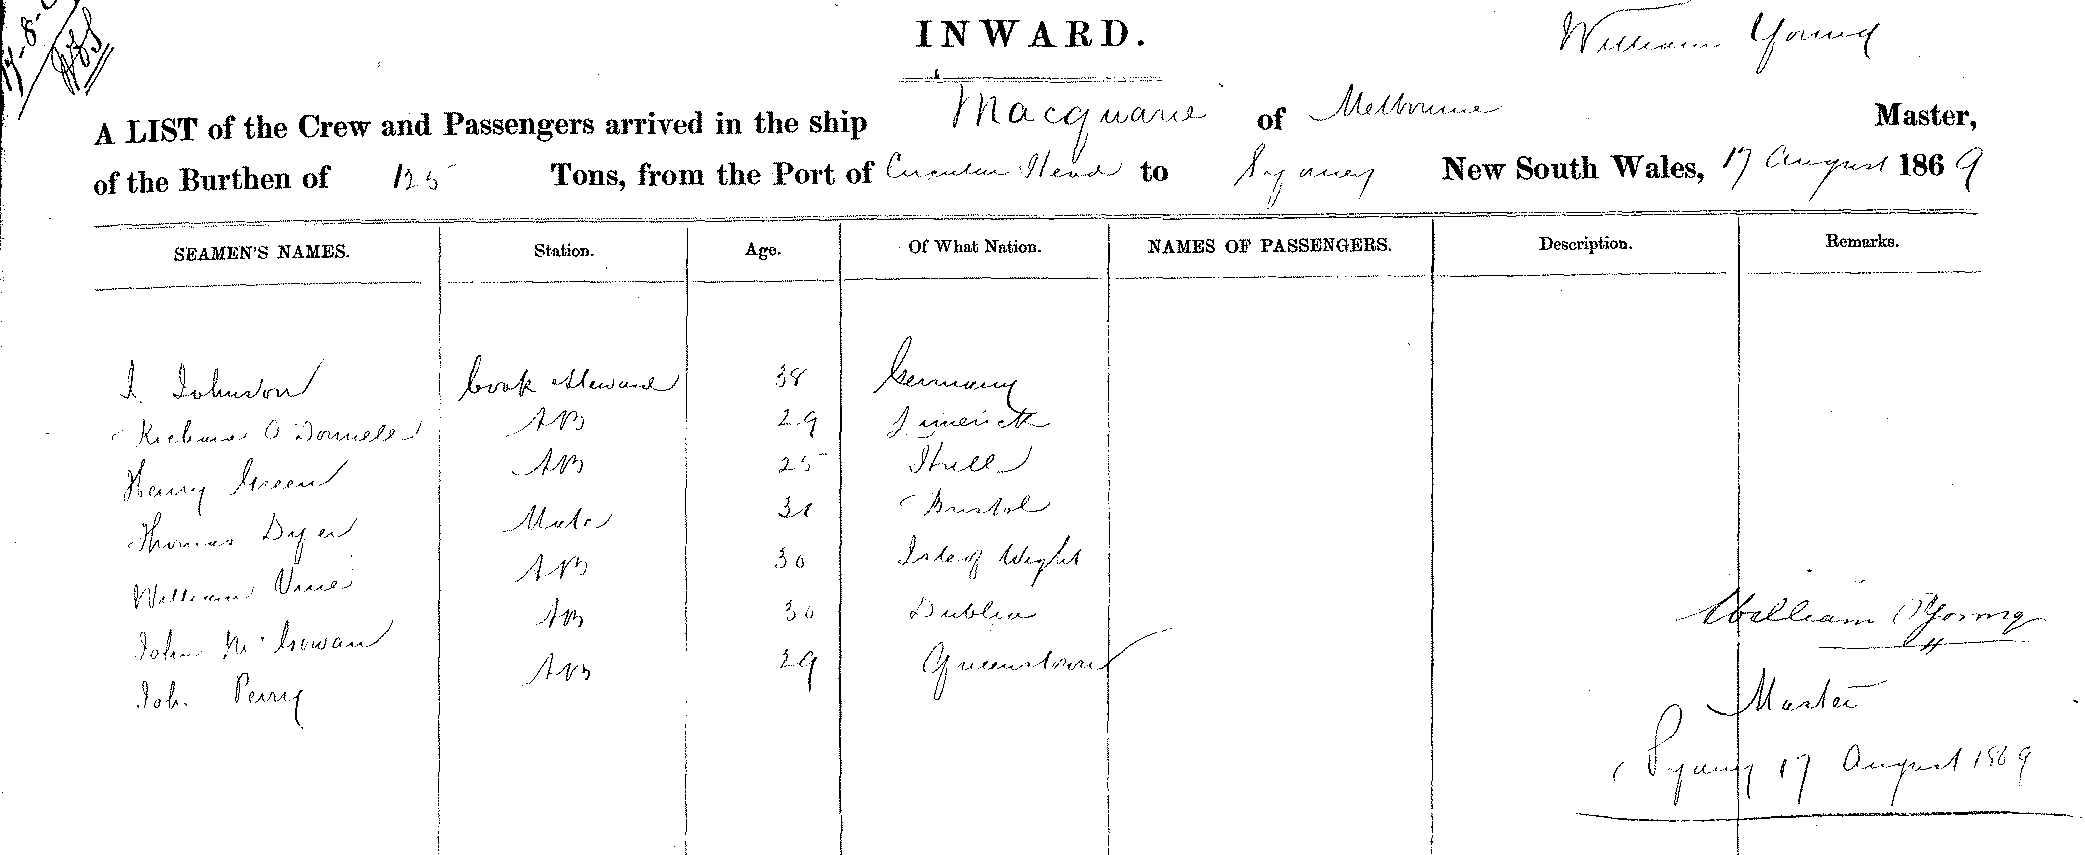 INWARD.
William Young
A LIST of the Crew and Passengers arrived in the ship Macquarie of Melbourne Master,
of the Burthen of 125 Tons, from the Port of Circular Head to Sydney New South Wales, 17 August 1869
SEAMEN'S NAMES. Station. Age. Of What Nation. NAMES OF PASSENGERS. Description. Remarks.
J. Johnson Cook Steward 38 Germany
Richard O'Donnell AB 29 Limerick
Henry Green AB 25 Hull
Thomas Dyer Mate 31 Bristol
William Vine AB 30 Isle of Wight
John McGowan AB 30 Dublin
Joh. Perry AB 29 Queenstown
William Young
Master
Sydney 17 August 1869